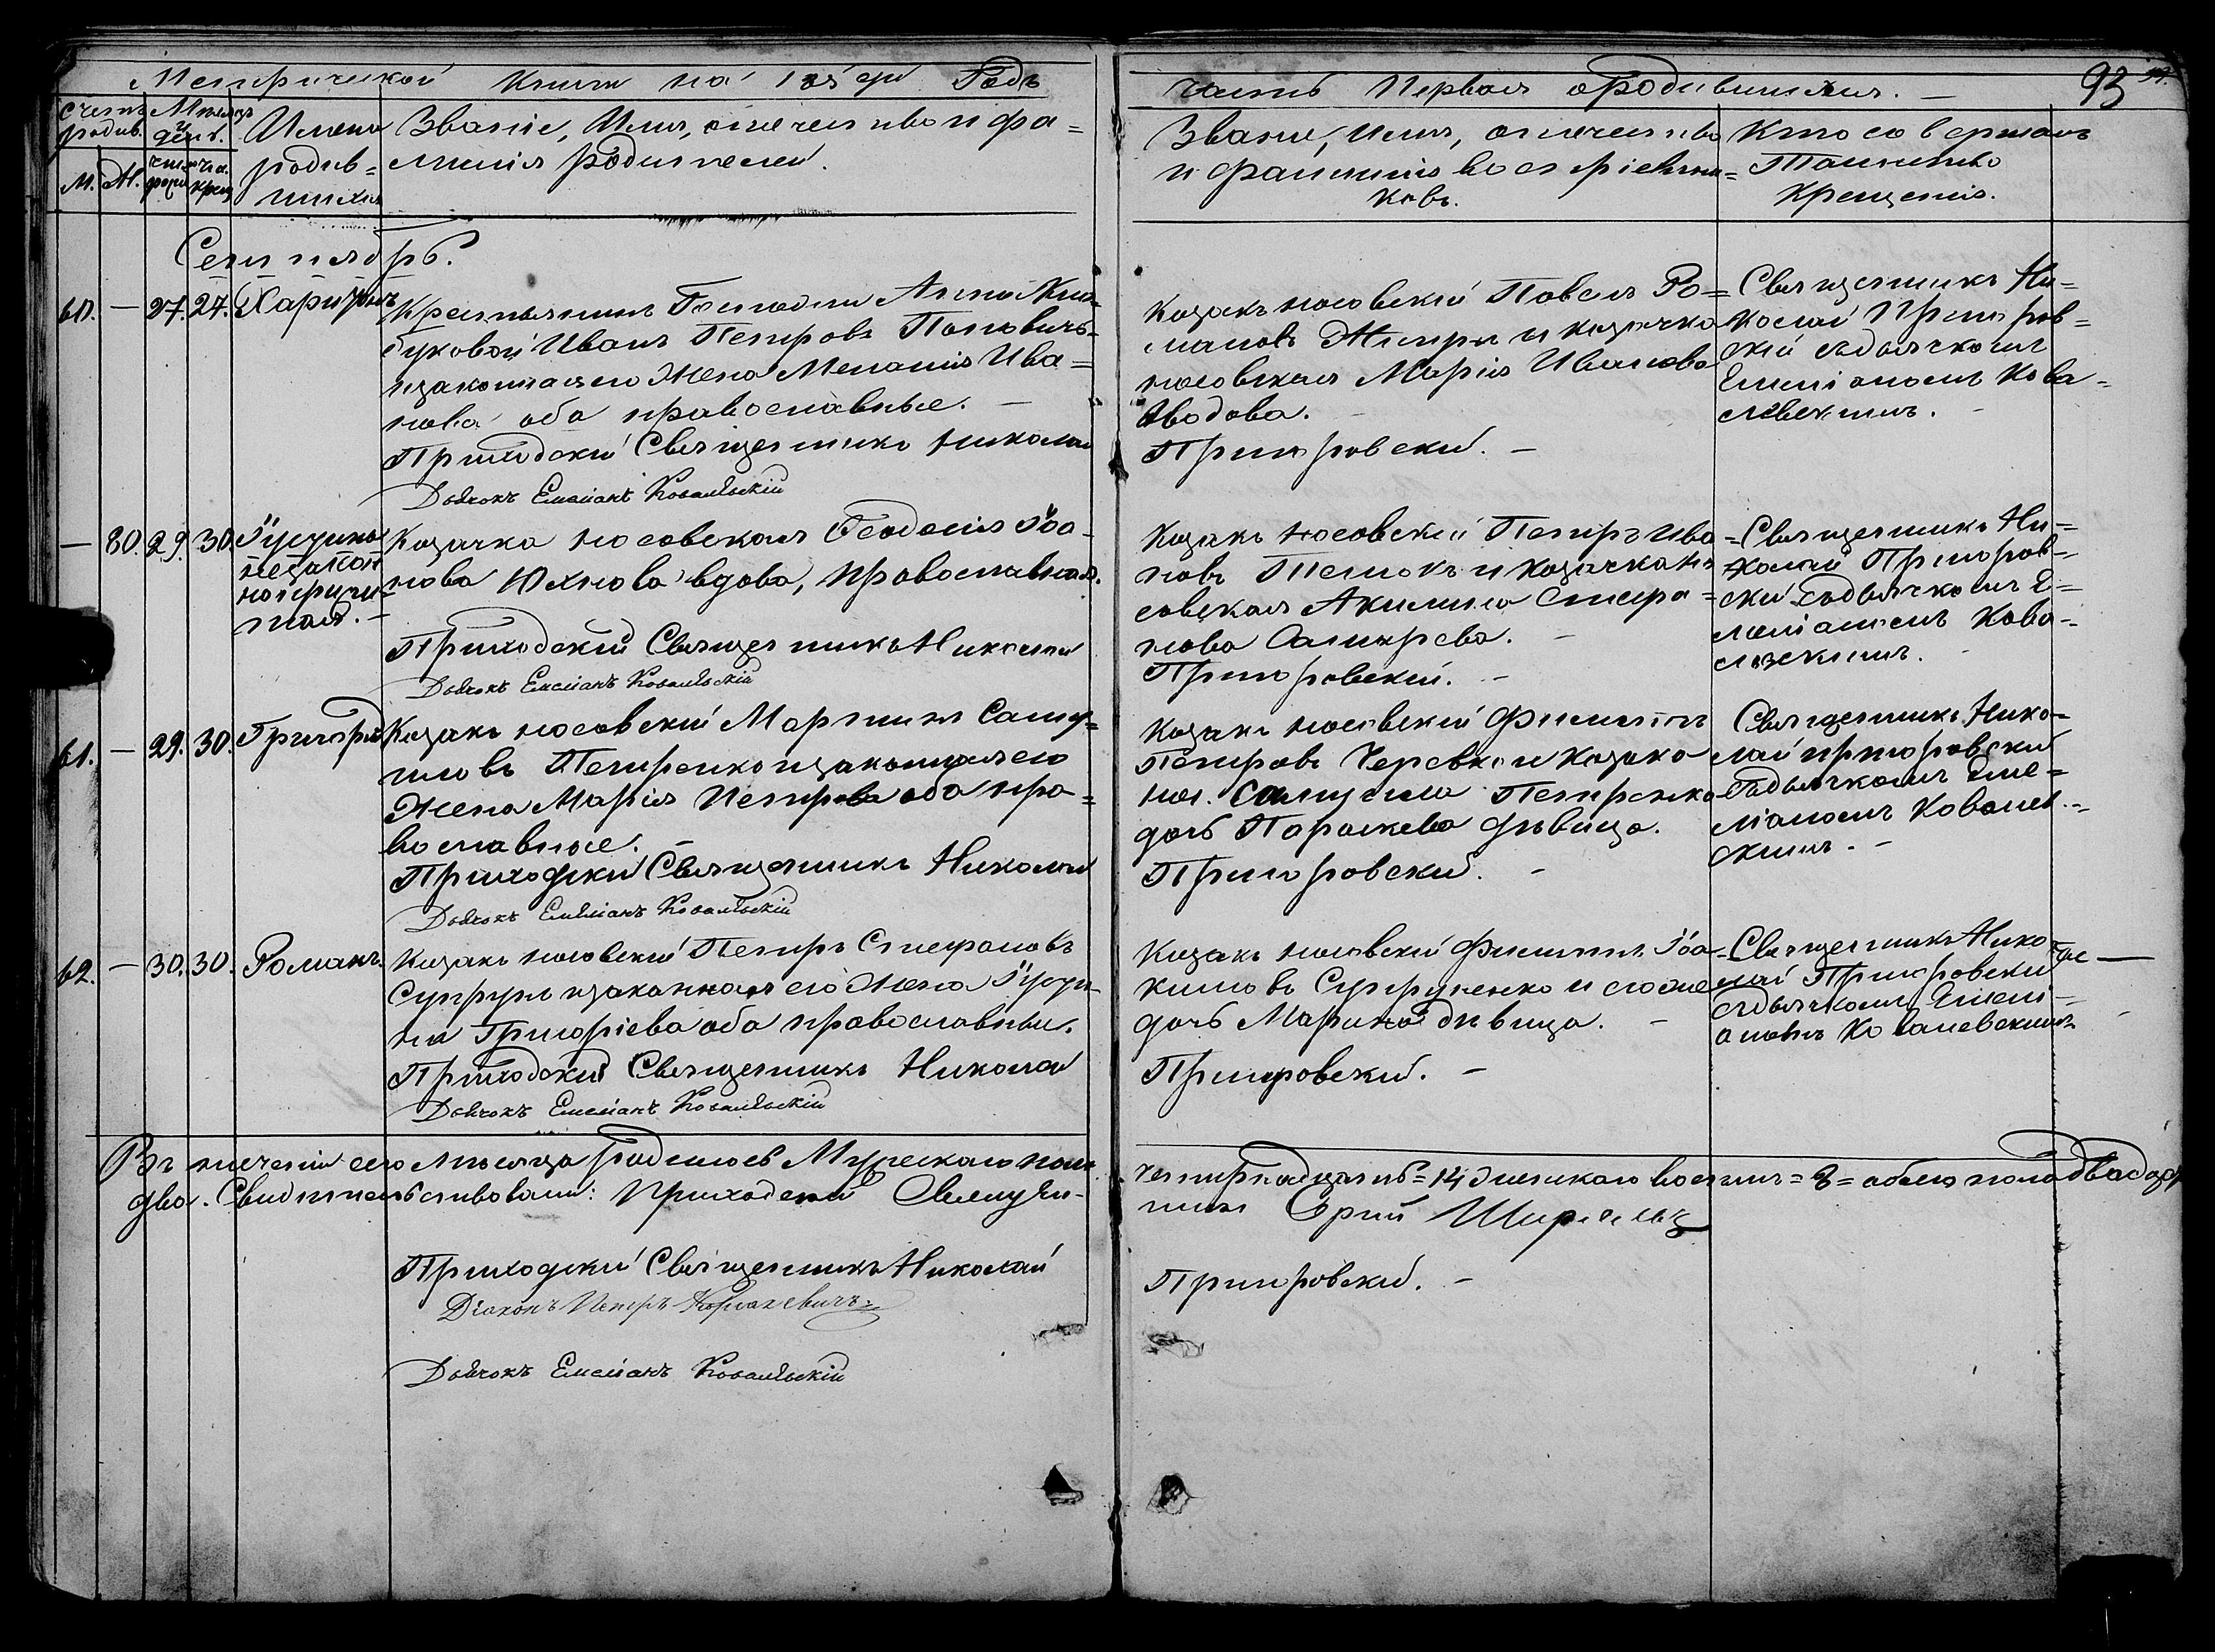 Метрической Книги на 18 Годъ
Часть Первая о родившихся. — 93
Счетъ родив. Месяцъ и день. Имена родив=шихся
М. Ж. число рожд. числа крещ.
Званіе, Имя, отечество и фа=
милія родителей.
Званіе, Имя, отечество
и фамилія воспріемни=
ковъ.
Кто совершалъ
Таинство
Крещенія.
Сентябрь.
60. — 27. 27. Харитонъ
Крестьянинъ Госпожи Анны
Иванъ Петровъ Поповичь
и законная его Жена Меланія Ива=
нова оба православные. —
Приходскій Священникъ Николай
Дьячокъ Емеліанъ Ковальскій
Козакъ носовскій Павелъ Ро=
мановъ и козачка
носовская Марія Иванова
Вдова. —
Григоровскій. —
Священникъ Ни=
колай Григоров=
скій съ дьячкомъ
Емеліаномъ Кова=
левскимъ. —
— 80. 29. 30. Іустина
незакон
норожден
ная. —
Козачка носовская Ѳеодосія Іоа=
нова Юхнова вдова, православная.
Приходскій Священникъ Николай
Дьячокъ Емеліанъ Ковальскій
Козакъ Носовскій Петръ Ива=
новъ и козачка но
совская Акилина Стефа=
нова. —
Григоровскій. —
Священникъ Ни=
колай Григоров=
скій съ дьячкомъ Е=
меліаномъ Кова=
левскимъ. —
61. — 29. 30. Григорій
Козакъ носовскій Мартинъ Самой=
ловъ Петренко и законная его
Жена Марія Петрова оба пра=
вославные. —
Приходскій Священникъ Николай
Дьячокъ Емеліанъ Ковальскій
Козакъ носовскій Филиппъ
Петровъ Черевко и козака
нос. Самуила Петренка
дочь Параскева дѣвица.
Григоровскій. —
Священникъ Нико=
лай Григоровскій
съ дьячкомъ Еме=
ліаномъ Ковалев=
скимъ. —
62. — 30. 30. Романъ.
Козакъ носовскій Петръ Стефановъ
Супрунъ и законная его Жена Іусти=
на Григоріева оба православные.
Приходскій Священникъ Николай
Дьячокъ Емеліанъ Ковальскій
Козакъ носовскій Филиппъ Іоа=
кимовъ Супруненко и его же
дочь Марина дѣвица. —
Григоровскій. —
Священникъ Нико=
лай Григоровскій
съ дьячкомъ Емелі=
аномъ Ковалевскимъ
Въ теченіи сего месяца родилось Мужескаго пола
четырнадцать=14 Женскаго восемь=8=обоего пола двадцать
два. Свидетельствовали: Приходскій Священ=
никъ
Приходскій Священникъ Николай
Григоровскій. —
Діаконъ Петръ
Дьячокъ Емеліанъ Ковальскій